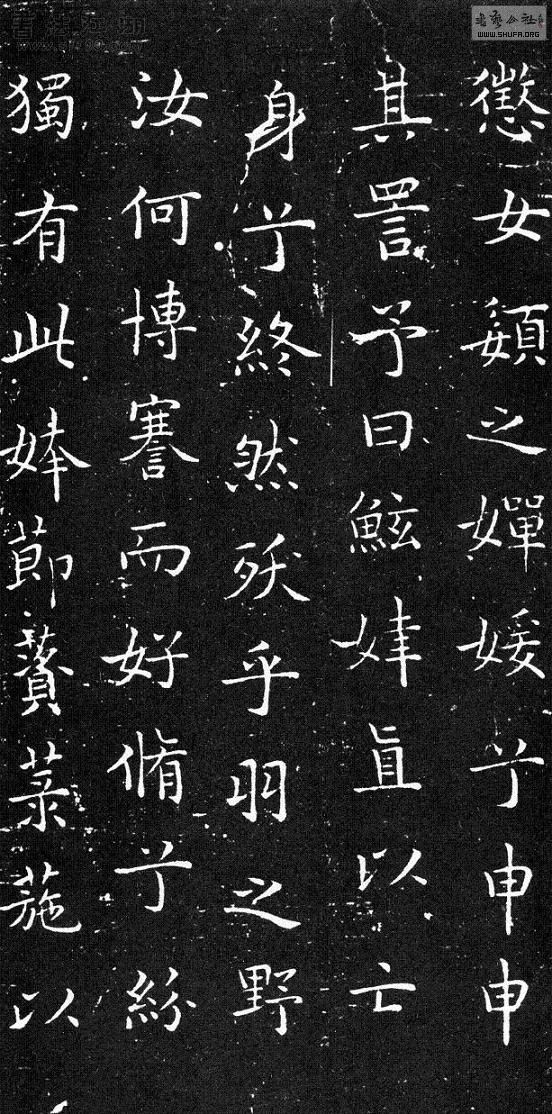 懲女嬃之嬋媛兮申申
其詈予曰鮌婞直以亡
身兮終然殀乎羽之野
汝何博謇而好脩兮紛
獨有此姱節薋菉葹以
書藝公社
WWW.SHUFA.ORG